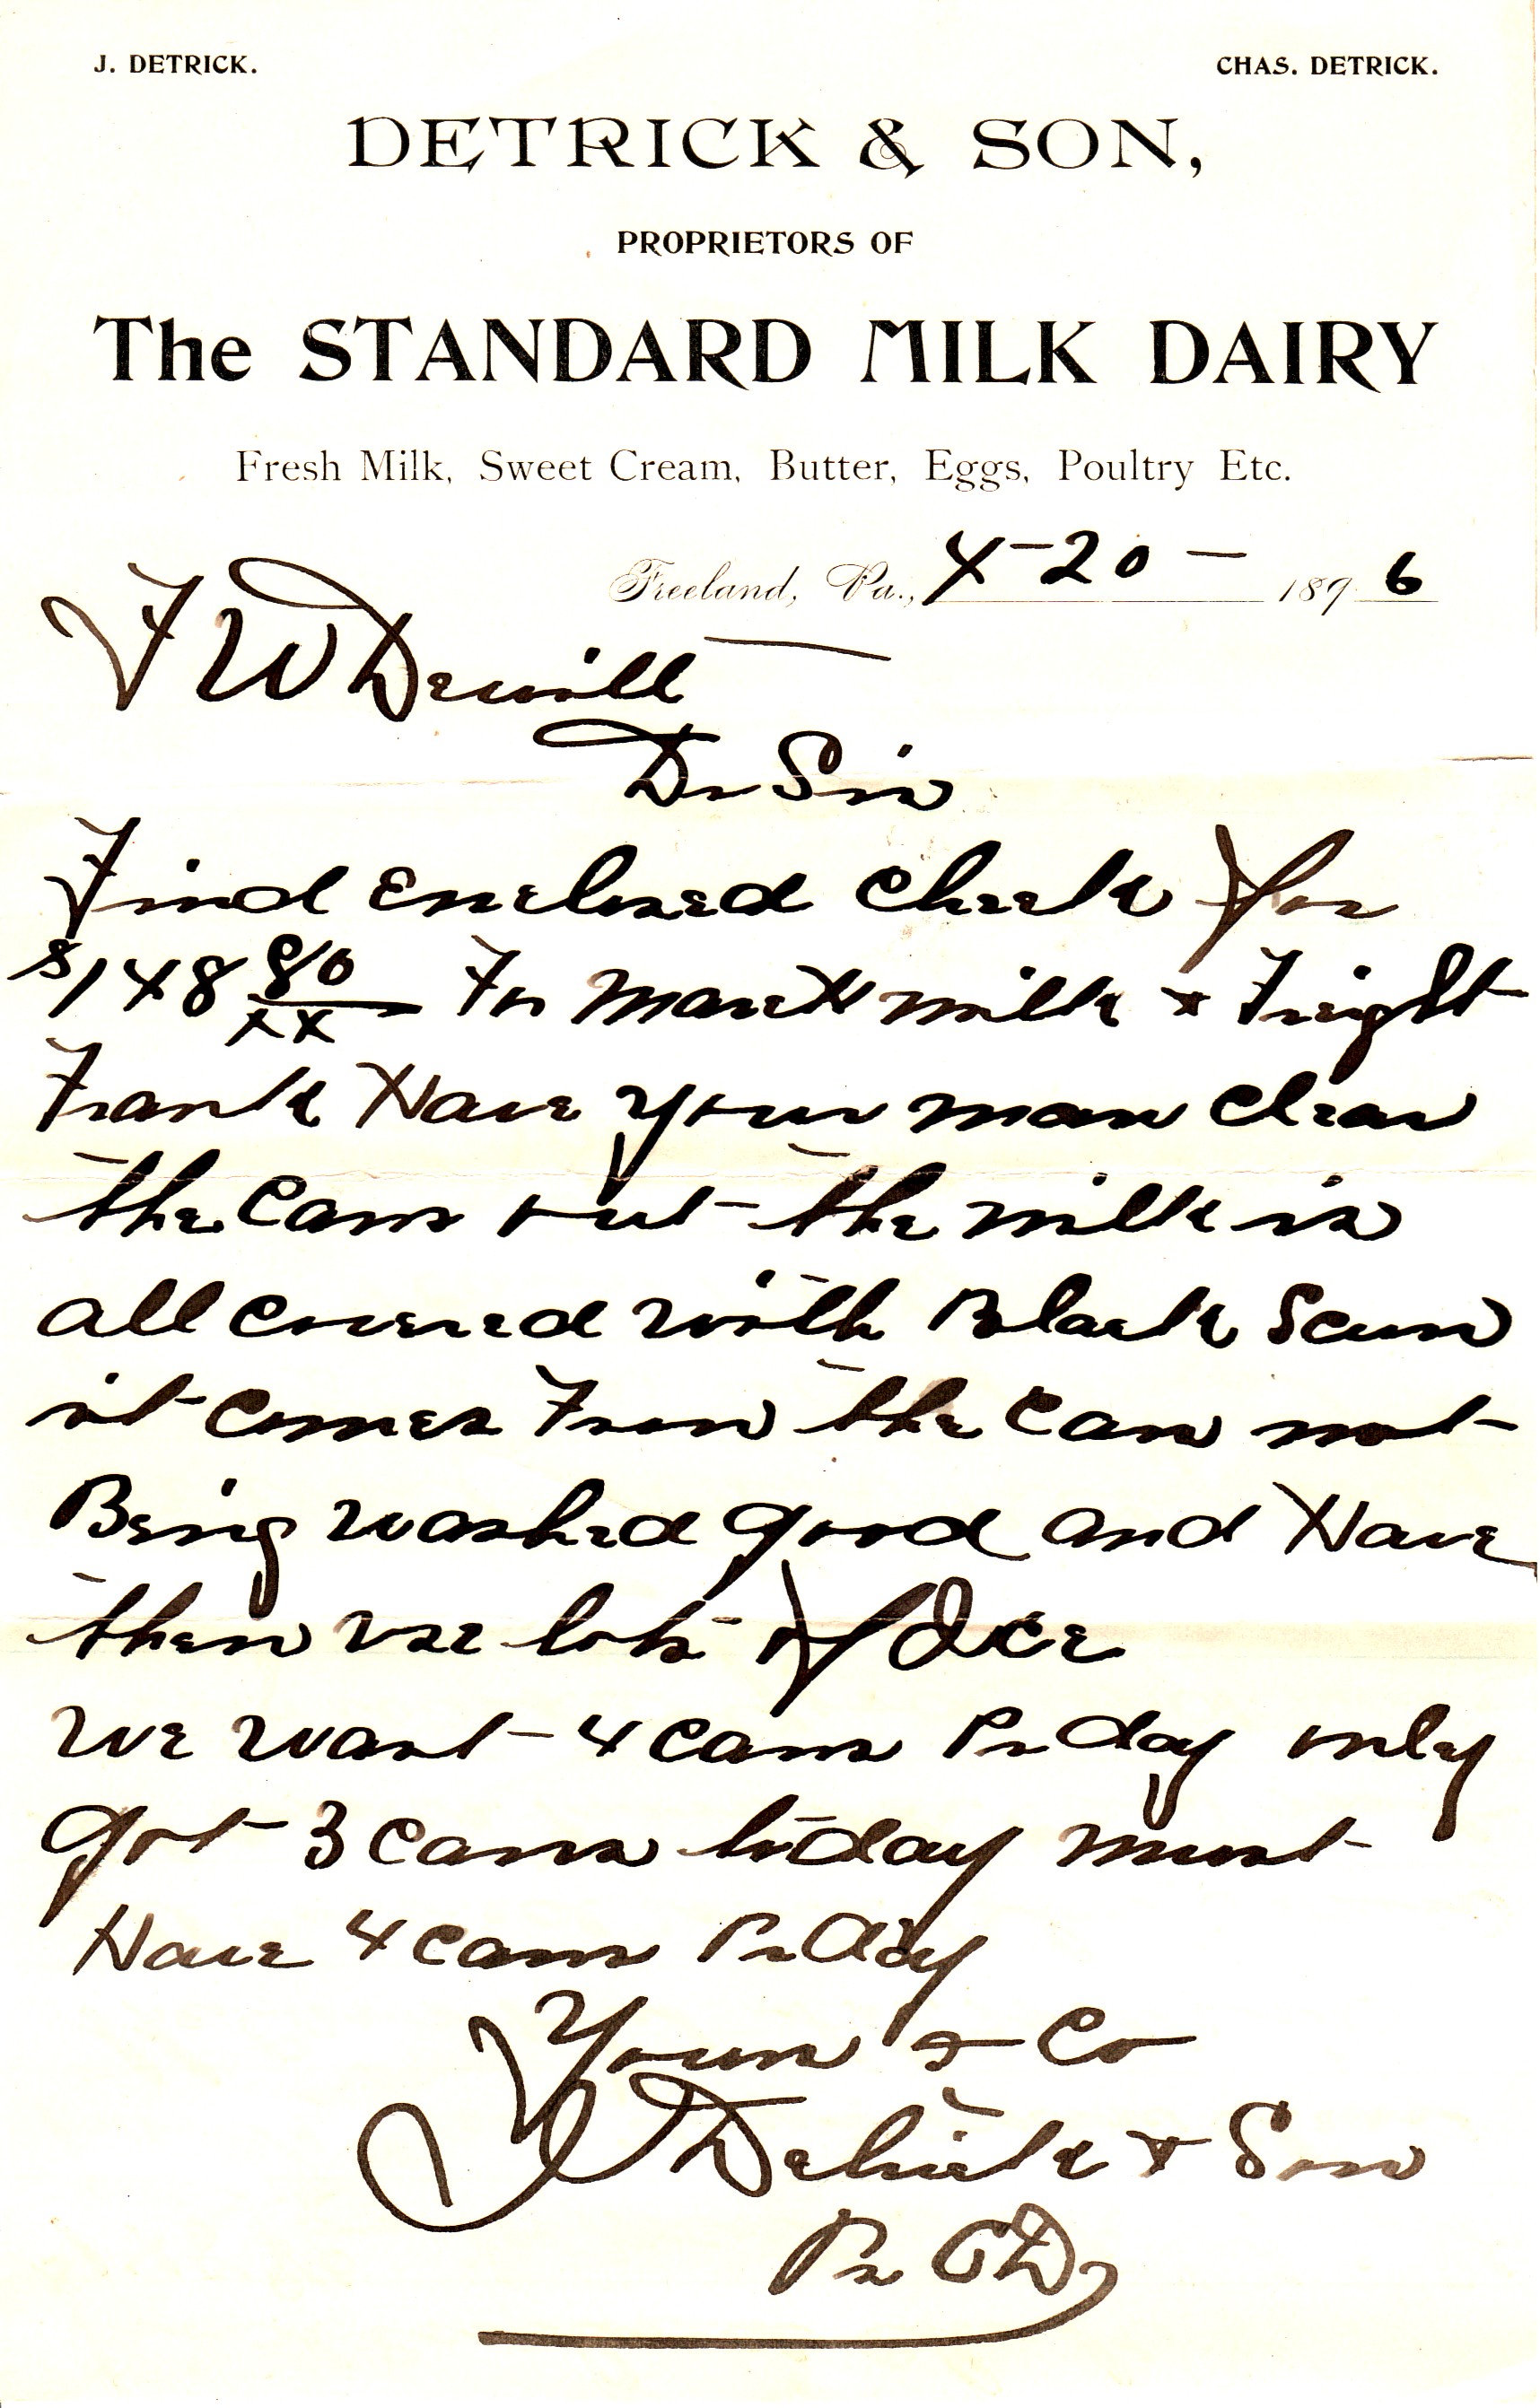 J. DETRICK.
CHAS. DETRICK.
DETRICK & SON,
PROPRIETORS OF
The STANDARD MILK DAIRY
Fresh Milk, Sweet Cream, Butter, Eggs, Poultry Etc.
Freeland, Pa., 4-20- 1896
F W Dewitt
Dr Sir
Find Enclosed Check for
$148 80/xx For March milk & Freight
Frank Have your man clean
the cans out the milk is
all covered with Black Scum
it comes From the can not
Being washed good and Have
them use lots of Ice
We want 4 cans Pr day only
got 3 cans to day must
Have 4 cans Pr day
Yours & Co
J Detrick & Son
Pr CD